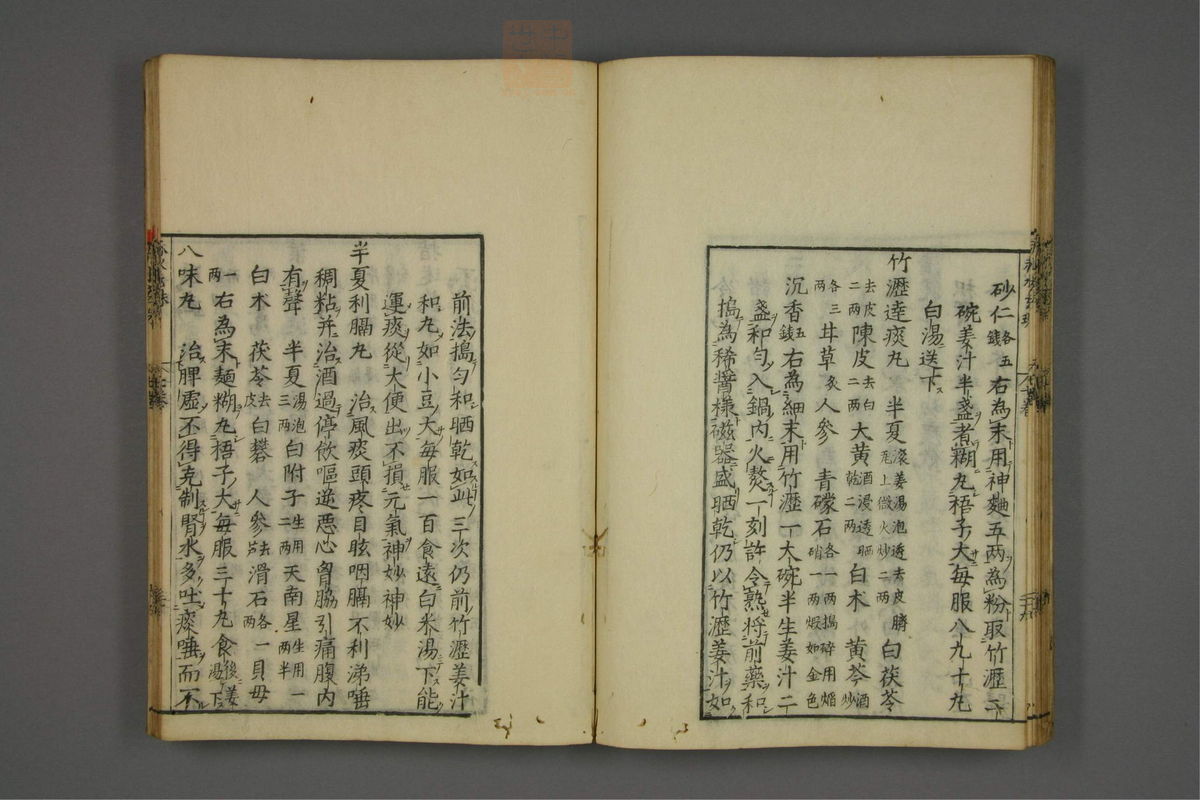 砂仁各五錢右為末用神麯五两為粉取竹瀝一
碗姜汁半盞煮糊丸梧子大每服八九十丸
白湯送下
竹瀝達痰丸 半夏滾姜湯泡透去皮臍瓦上微火炒二两白茯苓
去皮二两陳皮去白二两大黃酒浸透晒乾二两白术 黃芩酒炒
各三两甘草炙人參 青礞石各一两搗碎用焰硝一两煅如金色
沉香五錢右為細末用竹瀝一大碗半生姜汁二
盞和勻入鍋內火熬一刻許令熟将前藥和
搗為稀醬樣磁器盛晒乾仍以竹瀝姜汁如
前法搗勻和晒乾如此三次仍前竹瀝姜汁
和丸如小豆大每服一百食遠白米湯下能
運痰從大便出不損元氣神妙神妙
半夏利膈丸 治風痰頭疼目眩咽膈不利涕唾
稠粘并治酒過停飲嘔逆惡心胷脇引痛腹內
有聲 半夏湯泡三两白附子生用二两天南星生用一两半
白术 茯苓去皮白礬 人參去芦滑石各一两貝母
一两右為末麵糊丸梧子大每服三十丸食後姜湯下
八味丸 治脾虛不得克制腎水多吐痰唾而不